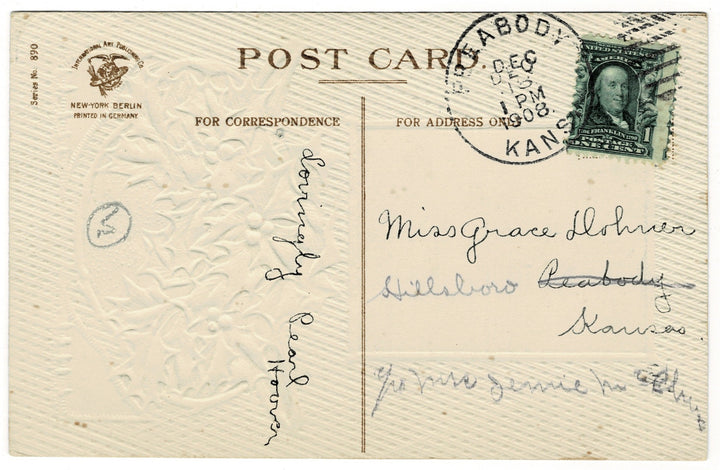 Series No. 890
INTERNATIONAL ART PUBLISHING CO.
NEW-YORK BERLIN
PRINTED IN GERMANY
POST CARD.
FOR CORRESPONDENCE
FOR ADDRESS ONLY
PEABODY
DEC
1 PM
1908
KANS
UNITED STATES OF
AMERICA
FRANKLIN
1
POSTAGE
ONE CENT
Lovingly Pearl
Hoover
Miss Grace Dohner
Hillsboro Peabody
Kansas.
c/o Mrs Jennie